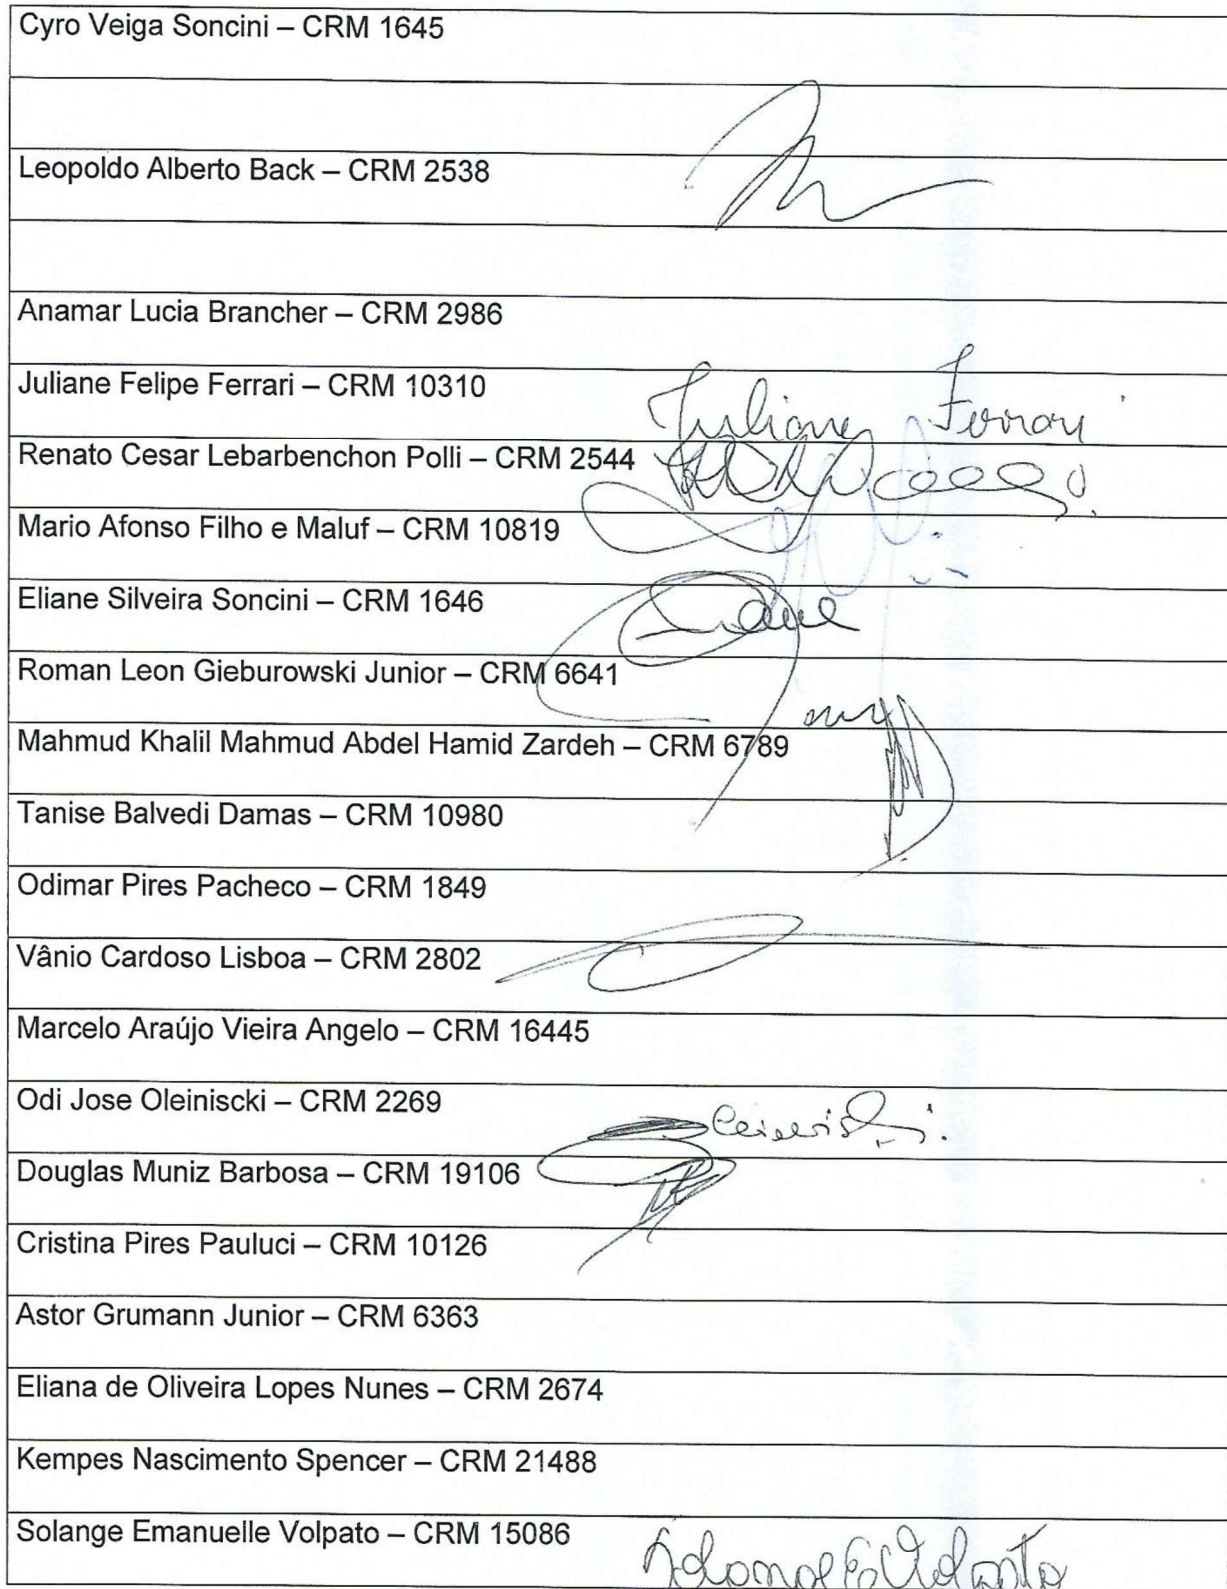 Cyro Veiga Soncini – CRM 1645
Leopoldo Alberto Back – CRM 2538
Anamar Lucia Brancher – CRM 2986
Juliane Felipe Ferrari – CRM 10310
Juliane Ferrari
Renato Cesar Lebarbenchon Polli – CRM 2544
Mario Afonso Filho e Maluf – CRM 10819
Eliane Silveira Soncini – CRM 1646
Roman Leon Gieburowski Junior – CRM 6641
Mahmud Khalil Mahmud Abdel Hamid Zardeh – CRM 6789
Tanise Balvedi Damas – CRM 10980
Odimar Pires Pacheco – CRM 1849
Vânio Cardoso Lisboa – CRM 2802
Marcelo Araújo Vieira Angelo – CRM 16445
Odi Jose Oleiniscki – CRM 2269
Douglas Muniz Barbosa – CRM 19106
Cristina Pires Pauluci – CRM 10126
Astor Grumann Junior – CRM 6363
Eliana de Oliveira Lopes Nunes – CRM 2674
Kempes Nascimento Spencer – CRM 21488
Solange Emanuelle Volpato – CRM 15086
Solange E Volpato